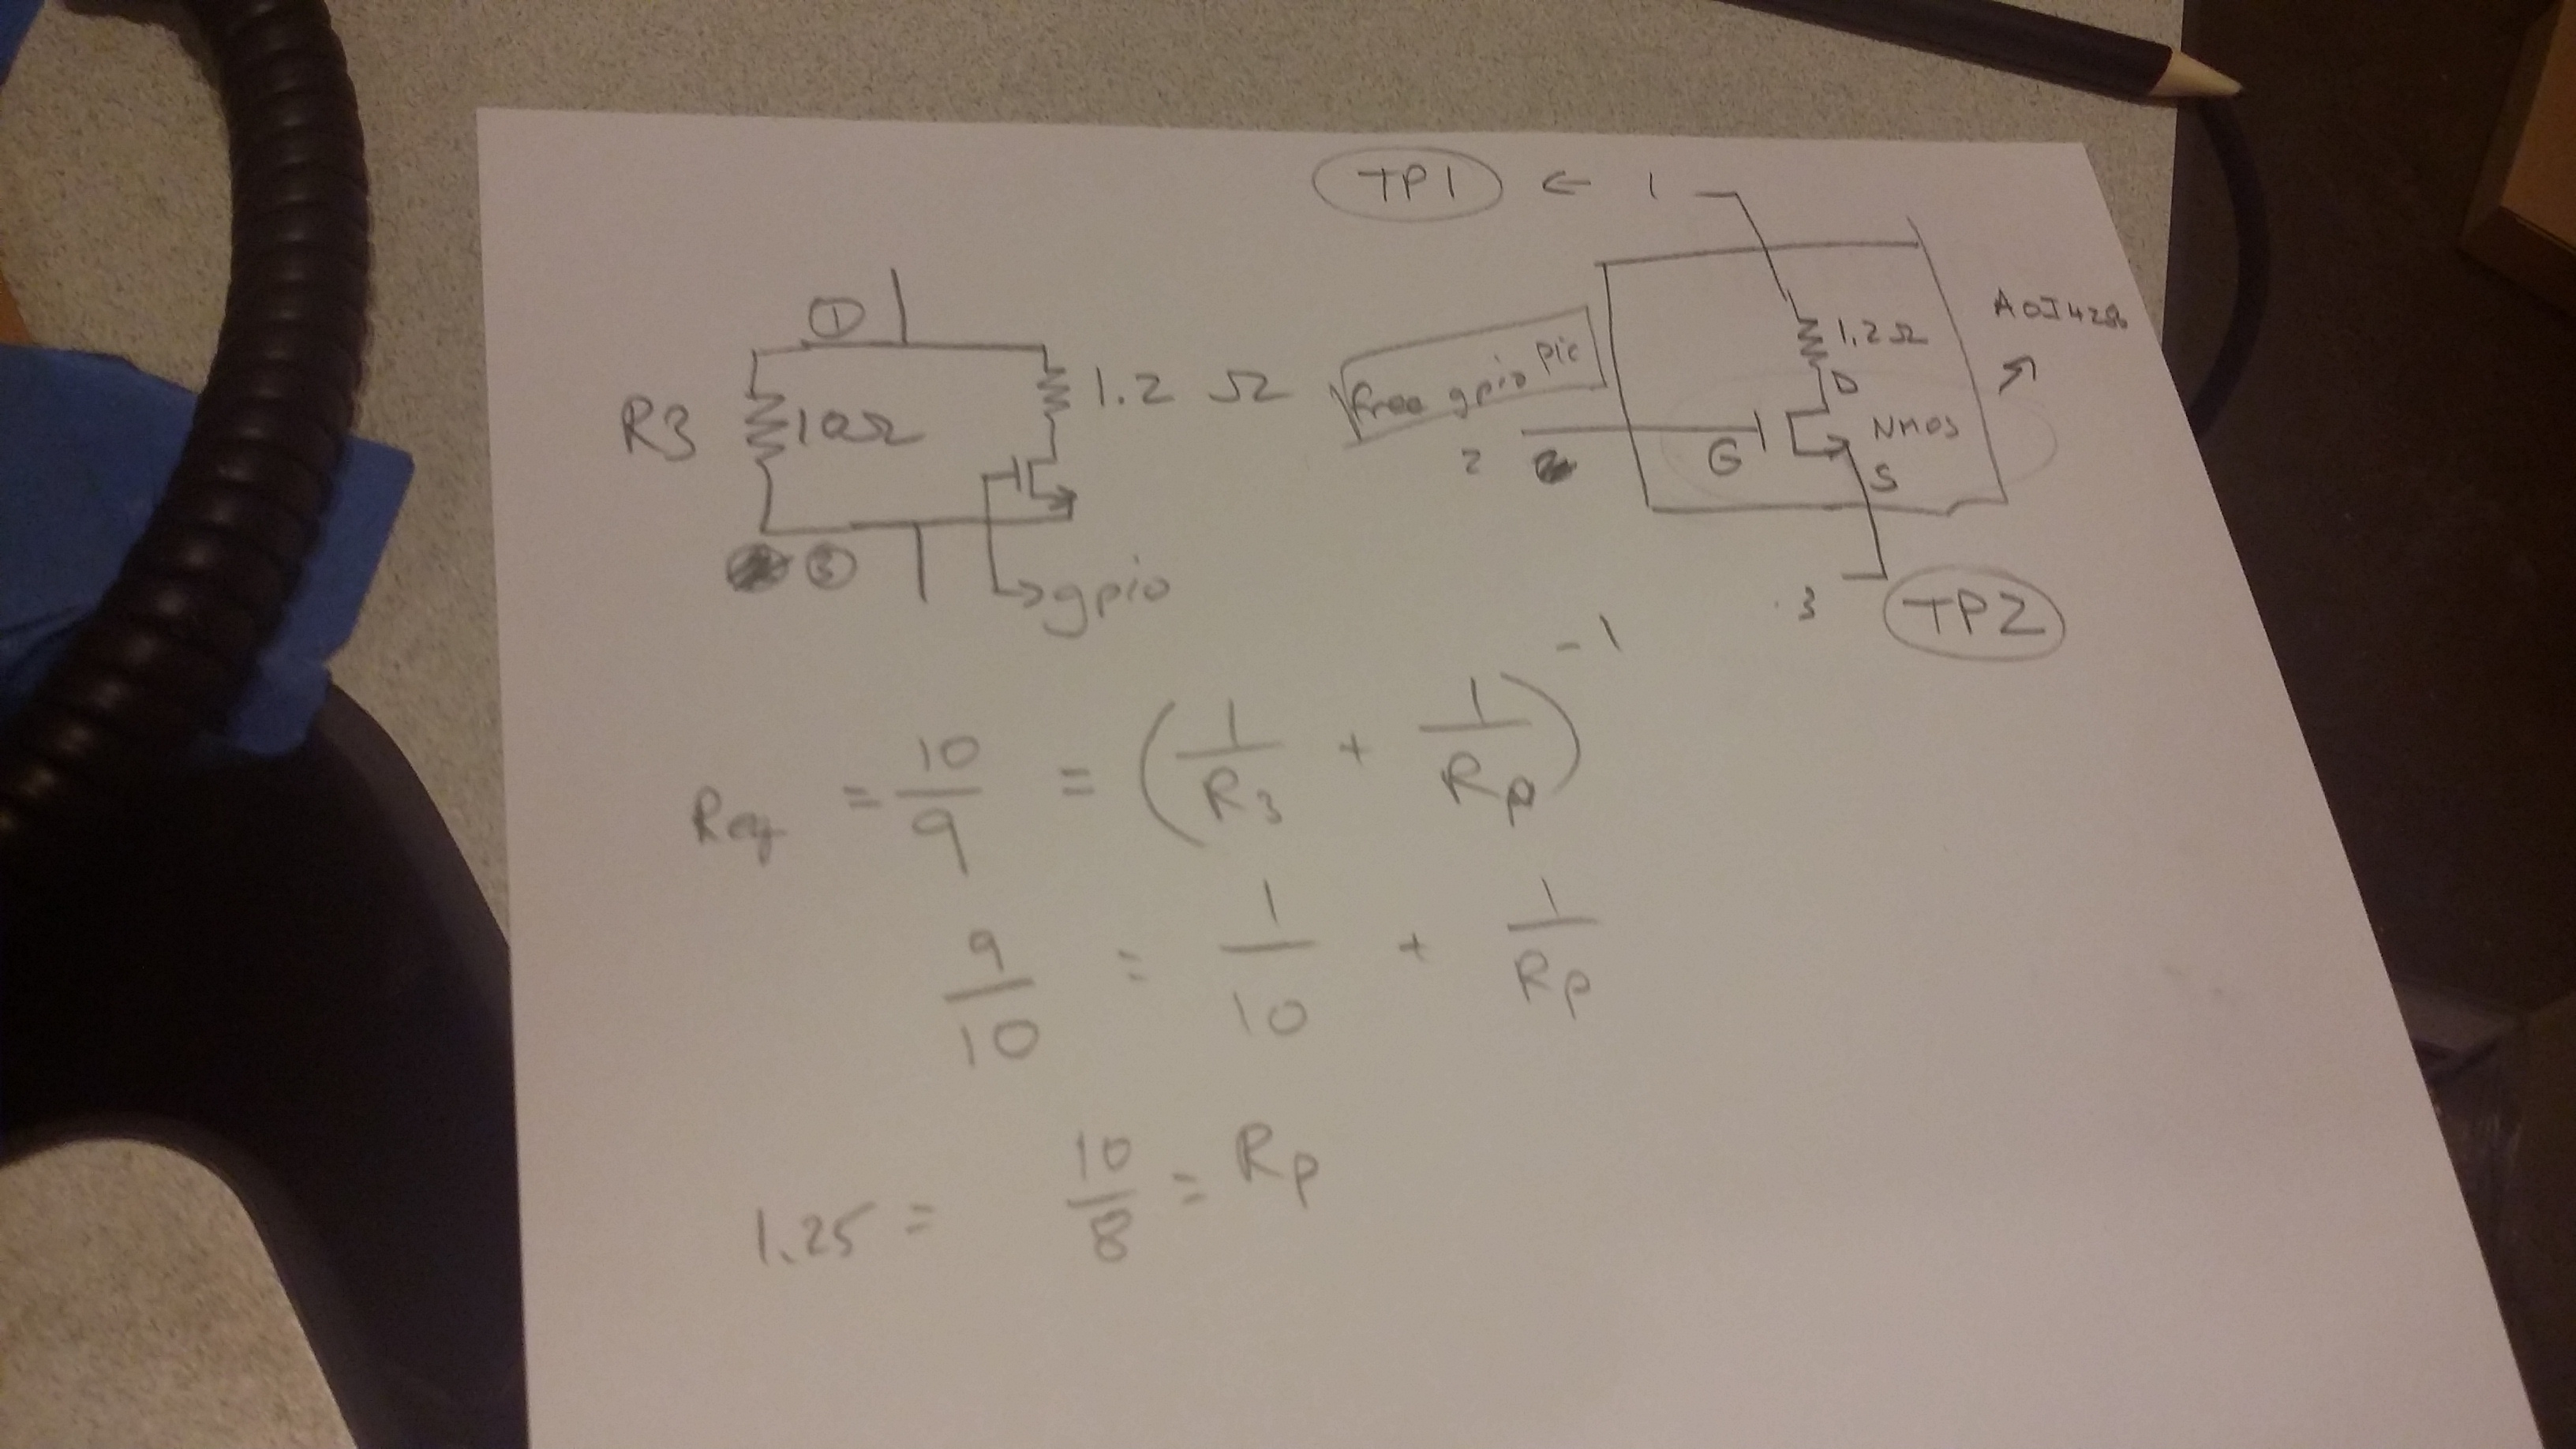 TP1 ← 1
①
R3 10Ω
1.2 Ω
③
→gpio
free gpio pic
2
1.2Ω
D
G
NMOS
S
3 TP2
Req = 10/9 = (1/R3 + 1/Rp)^-1
9/10 = 1/10 + 1/Rp
1.25 = 10/8 = Rp